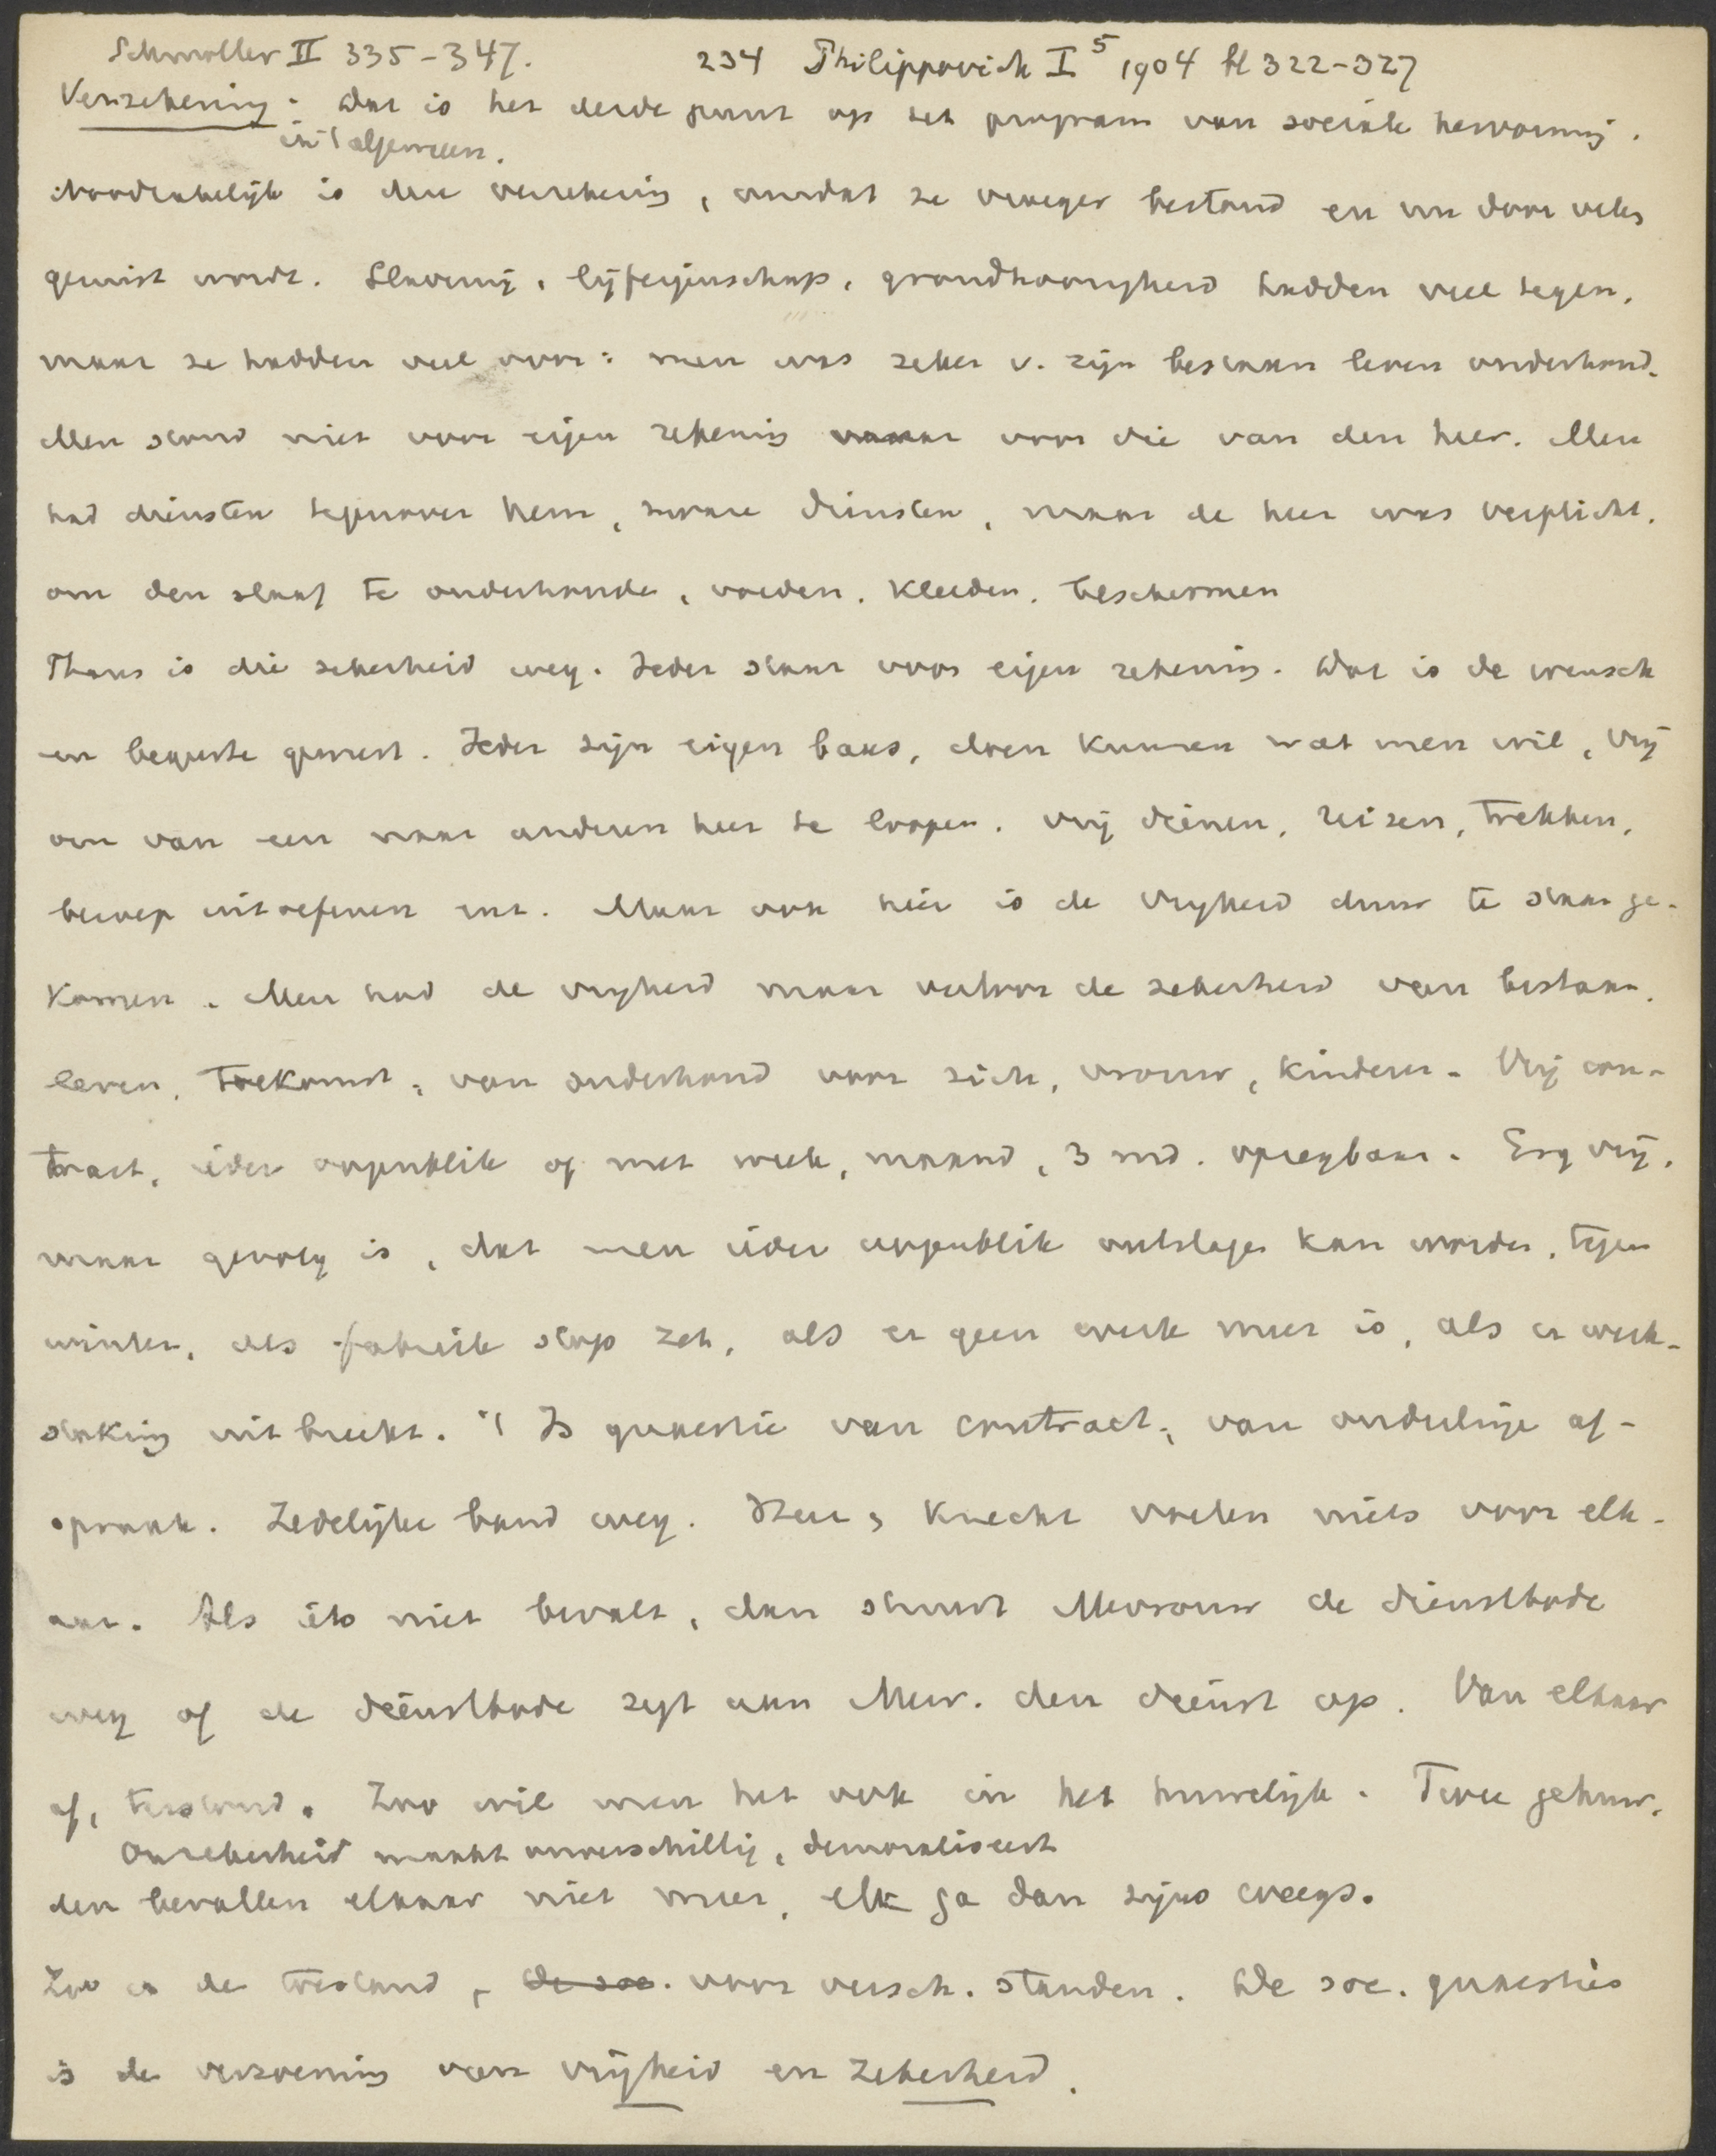 Schmoller II 335-347. 234 Philippovich I⁵ 1904 bl 322-327
Verzekering. Dat is het derde punt op het program van sociale hervorming.
in 't algemeen.
Noodzakelijk is den verzekering, omdat ze vroeger bestond en nu door velen
gemist wordt. Slavernij, lijfeigenschap, grondhoorigheid hadden veel tegen,
maar ze hadden veel voor: men was zeker v. zijn bestaan leven onderhoud.
Men stond niet voor eigen rekening maar voor die van den heer. Men
had diensten tegenover hem, zware diensten, maar de heer was verplicht,
om den slaaf te onderhouden, voeden, kleeden, beschermen
Thans is die zekerheid weg. Ieder staat voor eigen rekening. Dat is de wensch
en begeerte geweest. Ieder zijn eigen baas, doen kunnen wat men wil, vrij
om van een naar anderen heer te loopen, vrij dienen, reizen, trekken,
beroep uitoefenen enz. Maar ook hier is de vrijheid duur te staan ge-
komen. Men had de vrijheid maar verloor de zekerheid van bestaan,
leven, toekomst, van onderhoud voor zich, vrouw, kinderen. Vrij con-
tract, ieder oogenblik of met week, maand, 3 md. opzegbaar. Erg vrij,
maar gevolg is, dat men ieder oogenblik ontslagen kan worden, tegen
winter, als fabriek stop zet, als er geen werk meer is, als er werk-
staking uitbreekt. 't Is quaestie van contract, van onderlinge af-
spraak. Zedelijke band weg. Heer, knecht voelen niets voor elk-
aar. Als iets niet bevalt, dan stuurt Mevrouw de dienstbode
weg of de dienstbode zegt aan Mevr. den dienst op. Van elkaar
af, terstond. Zoo wil men het ook in het huwelijk. Twee gehuw-
Onzekerheid maakt onverschillig, demoraliseert
den bevallen elkaar niet meer, elk ga dan zijns weegs.
Zoo is de toestand, de soc. voor versch. standen. De soc. quaesties
is de verzoening van vrijheid en zekerheid.